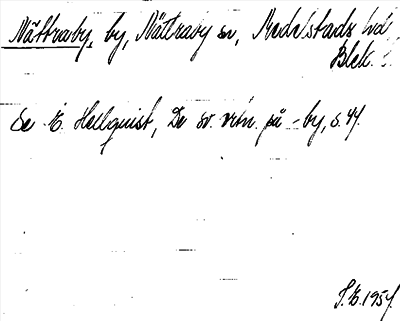 Nättraby, by, Nättraby sn, Medelstads hd,
Blek.
Se E. Hellquist, De sv. ortn. på -by, s. 47.
S.B. 1954.